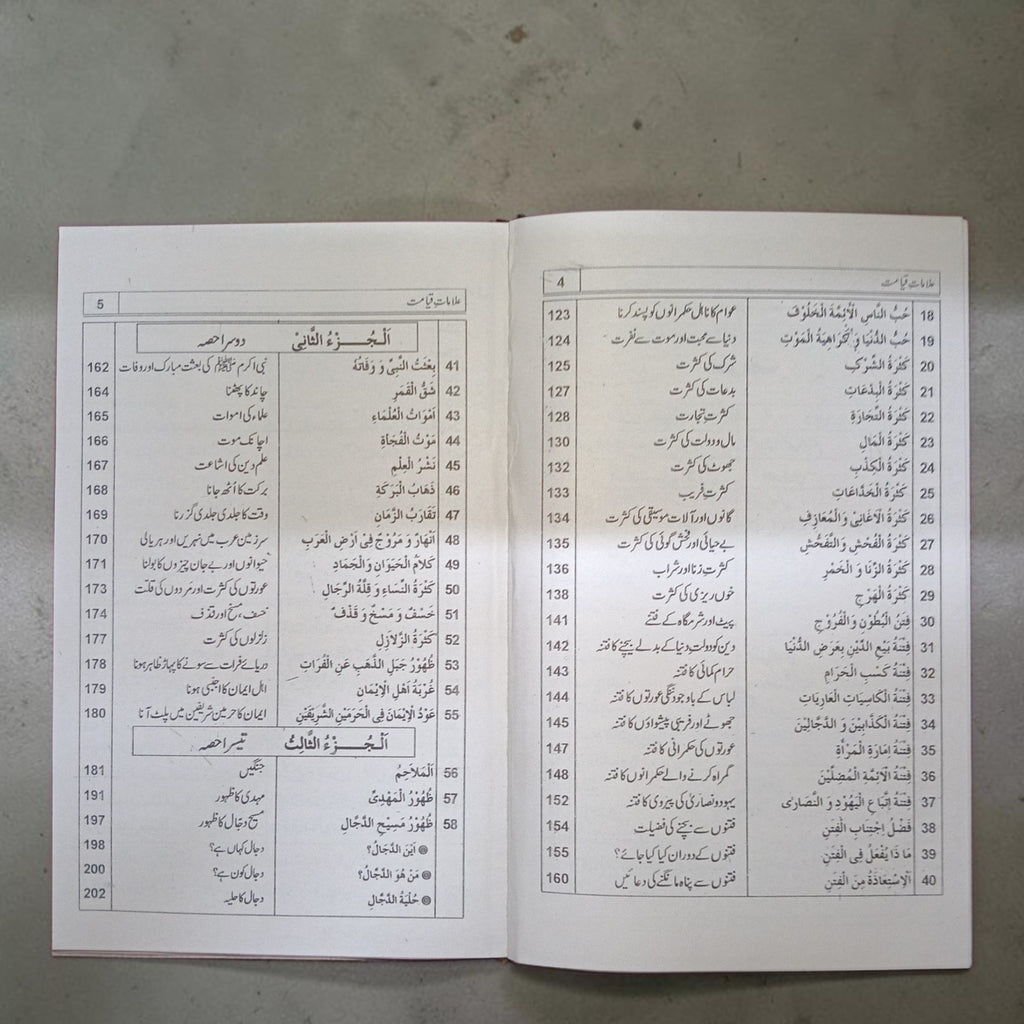 4 علاماتِ قیامت
18 حُبُّ النَّاسِ الْاَئِمَّةَ الْخَلُوْفَ عوام کا نااہل حکمرانوں کو پسند کرنا 123
19 حُبُّ الدُّنْيَا وَ كَرَاهِيَةُ الْمَوْتِ دنیا سے محبت اور موت سے نفرت 124
20 كَثْرَةُ الشِّرْكِ شرک کی کثرت 125
21 كَثْرَةُ الْبِدْعَاتِ بدعات کی کثرت 127
22 كَثْرَةُ التِّجَارَةِ کثرتِ تجارت 128
23 كَثْرَةُ الْمَالِ مال و دولت کی کثرت 130
24 كَثْرَةُ الْكِذْبِ جھوٹ کی کثرت 132
25 كَثْرَةُ الْخَدَّاعَاتِ کثرتِ فریب 133
26 كَثْرَةُ الْاَغَانِيْ وَ الْمَعَازِفِ گانوں اور آلات موسیقی کی کثرت 134
27 كَثْرَةُ الْفُحْشِ وَ التَّفَحُّشِ بے حیائی اور فحش گوئی کی کثرت 135
28 كَثْرَةُ الزِّنَا وَ الْخَمْرِ کثرتِ زنا اور شراب 136
29 كَثْرَةُ الْهَرْجِ خوں ریزی کی کثرت 138
30 فِتَنُ الْبُطُوْنِ وَ الْفُرُوْجِ پیٹ اور شرمگاہ کے فتنے 141
31 فِتْنَةُ بَيْعِ الدِّيْنِ بِعَرَضِ الدُّنْيَا دین کو دولتِ دنیا کے بدلے بیچنے کا فتنہ 142
32 فِتْنَةُ كَسْبِ الْحَرَامِ حرام کمائی کا فتنہ 143
33 فِتْنَةُ الْكَاسِيَاتِ الْعَارِيَاتِ لباس کے باوجود ننگی عورتوں کا فتنہ 144
34 فِتْنَةُ الْكَذَّابِيْنَ وَ الدَّجَّالِيْنَ جھوٹے اور فریبی پیشواؤں کا فتنہ 145
35 فِتْنَةُ اِمَارَةِ الْمَرْأَةِ عورتوں کی حکمرانی کا فتنہ 147
36 فِتْنَةُ الْاَئِمَّةِ الْمُضِلِّيْنَ گمراہ کرنے والے حکمرانوں کا فتنہ 148
37 فِتْنَةُ اِتِّبَاعِ الْيَهُوْدِ وَ النَّصَارٰى یہود و نصاریٰ کی پیروی کا فتنہ 152
38 فَضْلُ اِجْتِنَابِ الْفِتَنِ فتنوں سے بچنے کی فضیلت 154
39 مَا ذَا يُفْعَلُ فِي الْفِتَنِ فتنوں کے دوران کیا کیا جائے؟ 155
40 اَلْاِسْتِعَاذَةُ مِنَ الْفِتَنِ فتنوں سے پناہ مانگنے کی دعائیں 160
5 علاماتِ قیامت
اَلْجُزْءُ الثَّانِيْ دوسرا حصہ
41 بِعْثَتُ النَّبِيِّ وَ وَفَاتُهُ نبی اکرم ﷺ کی بعثت مبارک اور وفات 162
42 شَقُّ الْقَمَرِ چاند کا پھٹنا 164
43 اَمْوَاتُ الْعُلَمَاءِ علماء کی اموات 165
44 مَوْتُ الْفُجَاةِ اچانک موت 166
45 نَشْرُ الْعِلْمِ علم دین کی اشاعت 167
46 ذَهَابُ الْبَرَكَةِ برکت کا اُٹھ جانا 168
47 تَقَارُبُ الزَّمَانِ وقت کا جلدی جلدی گزرنا 169
48 اَنْهَارٌ وَ مَرُوْجٌ فِيْ اَرْضِ الْعَرَبِ سرزمین عرب میں نہریں اور ہریالی 170
49 كَلَامُ الْحَيَوَانِ وَالْجَمَادِ حیوانوں اور بے جان چیزوں کا بولنا 171
50 كَثْرَةُ النِّسَاءِ وَ قِلَّةُ الرِّجَالِ عورتوں کی کثرت اور مردوں کی قلت 173
51 خَسْفٌ وَ مَسْخٌ وَ قَذْفٌ خسف، مسخ اور قذف 174
52 كَثْرَةُ الزَّلَازِلِ زلزلوں کی کثرت 177
53 ظُهُوْرُ جَبَلِ الذَّهَبِ عَنِ الْفُرَاتِ دریائے فرات سے سونے کا پہاڑ ظاہر ہونا 178
54 غُرْبَةُ اَهْلِ الْاِيْمَانِ اہل ایمان کا اجنبی ہونا 179
55 عَوْدُ الْاِيْمَانِ فِي الْحَرَمَيْنِ الشَّرِيْفَيْنِ ایمان کا حرمین شریفین میں پلٹ آنا 180
اَلْجُزْءُ الثَّالِثُ تیسرا حصہ
56 اَلْمَلَاحِمُ جنگیں 181
57 ظُهُوْرُ الْمَهْدِيِّ مہدی کا ظہور 191
58 ظُهُوْرُ مَسِيْحِ الدَّجَّالِ مسیح دجال کا ظہور 197
اَيْنَ الدَّجَّالُ؟ دجال کہاں ہے؟ 198
مَنْ هُوَ الدَّجَّالُ؟ دجال کون ہے؟ 200
حُلْيَةُ الدَّجَّالِ دجال کا حلیہ 202